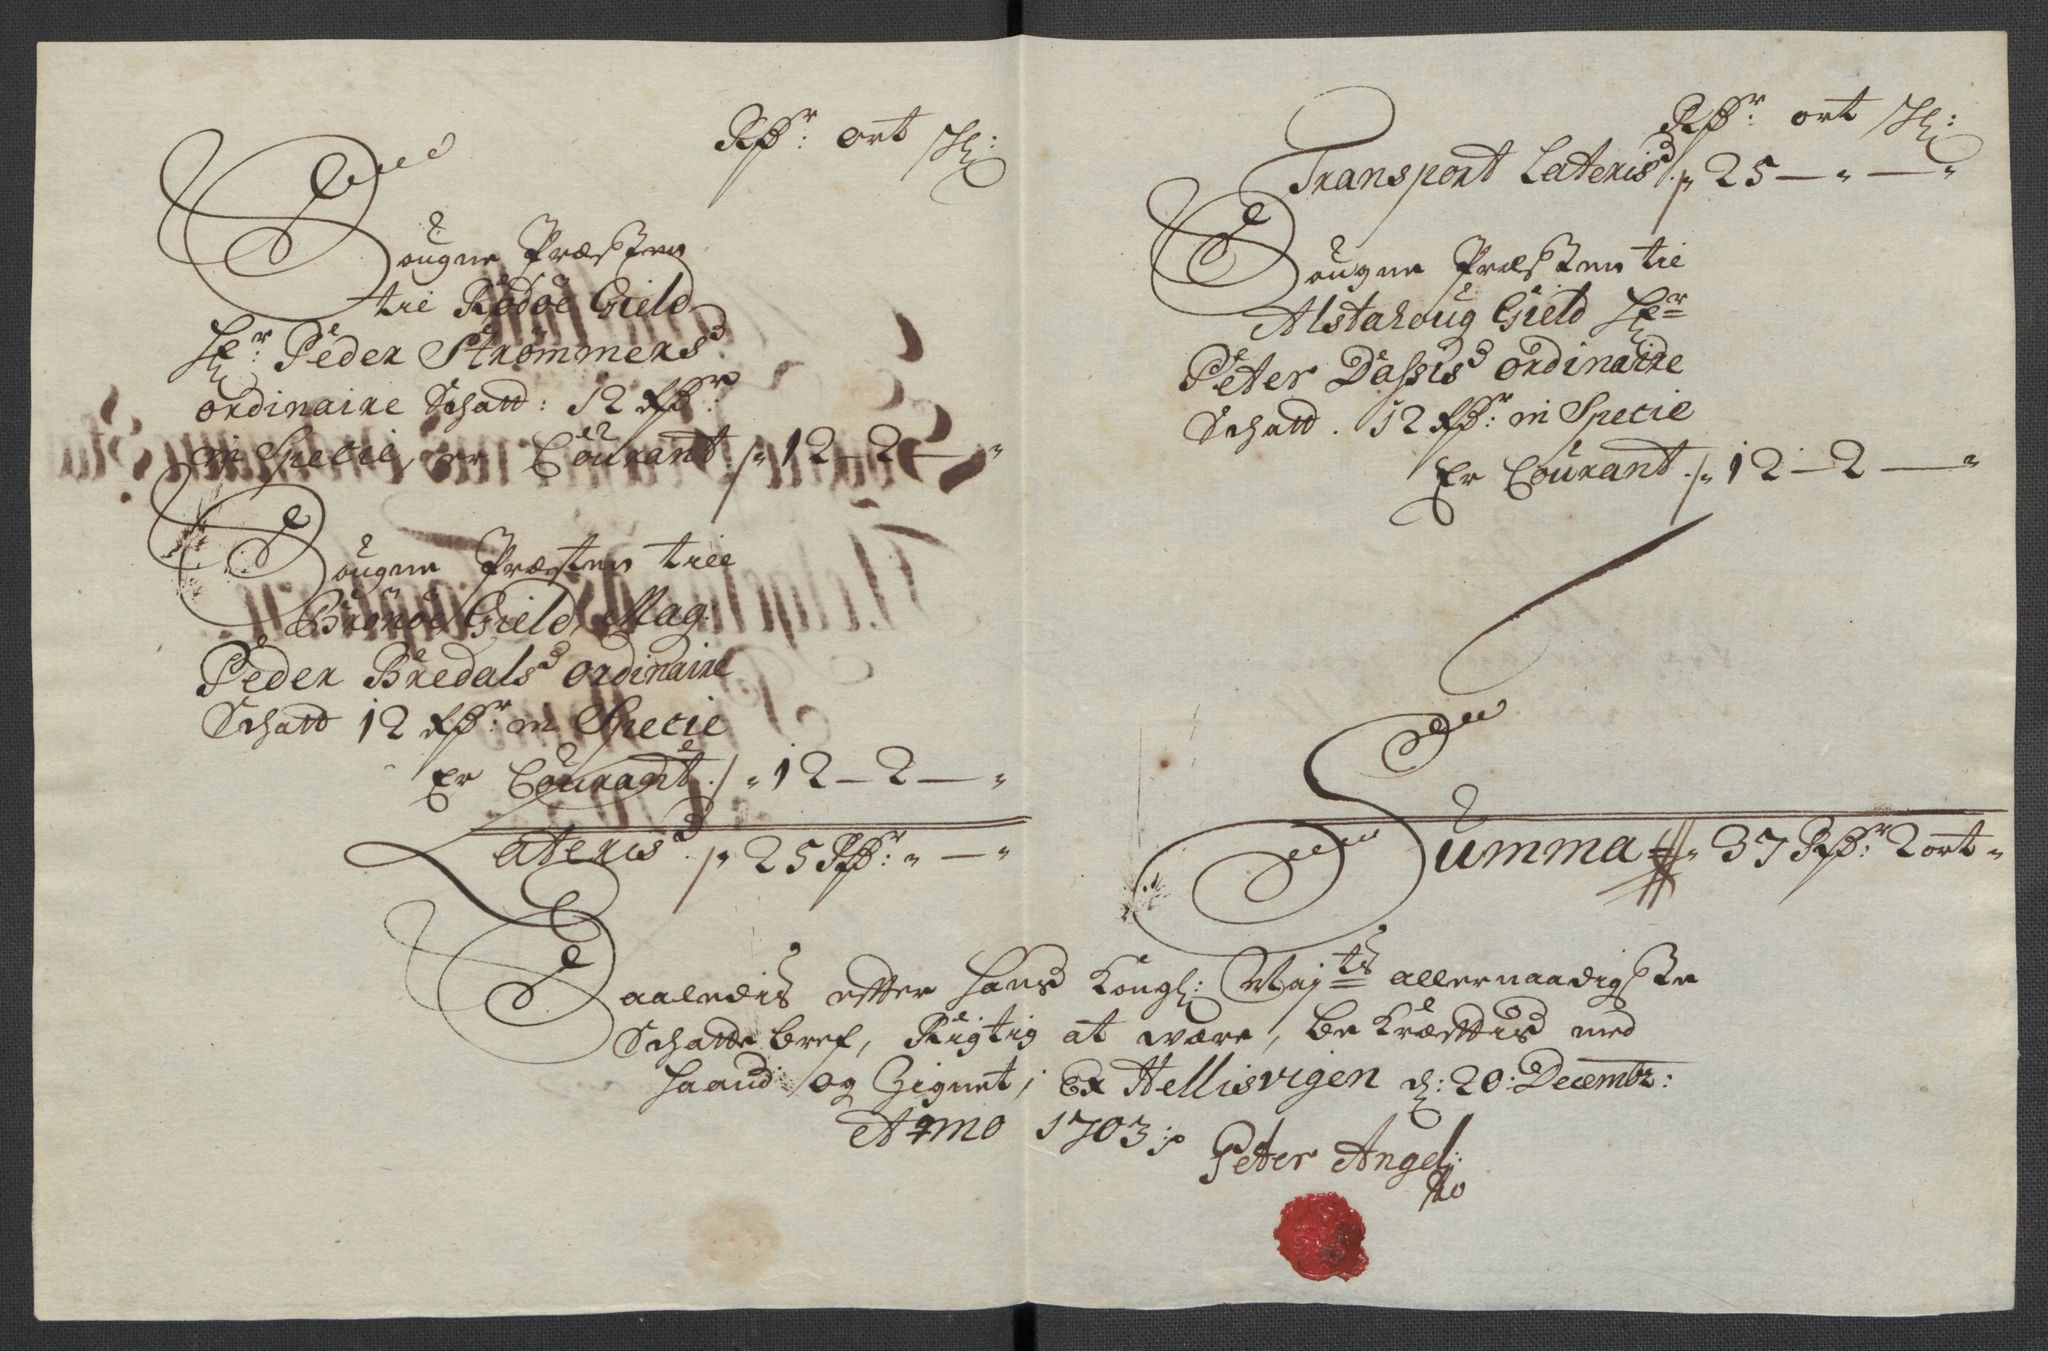 Rdr: ort ſk:
Sougne Præsten
till Rödöe Gield
Hr: Peder Strömmers
ordinaire Schatt: 12 Rdr:
in Specie, er Courant ./. 12 – 2 – "
Sougne Præsten till
Brönöe Gield, Mag:
Peder Bredals ordinaire
Schatt 12 Rdr: in Specie
Er Courant ./. 12 – 2 – "
Lateris ./. 25 Rdr: " – "
Rdr: ort ſk:
Transport Lateris ./. 25 – " – "
Sougne Præsten til
Alstahoug Gield Hr
Peter Dassis ordinaire
Schatt. 12 Rdr: in Specie
Er Courant ./. 12 – 2 – "
Summa 37 Rdr: 2 ort "
Saaledis efter Hans Kongl: Majts allernaadigste
Schatte bref, Rigtig at være, bekræftis med
haand og Zignet; Ex Hellisvigen d: 20: Decembr:
Anno 1703:
Peter Angel: